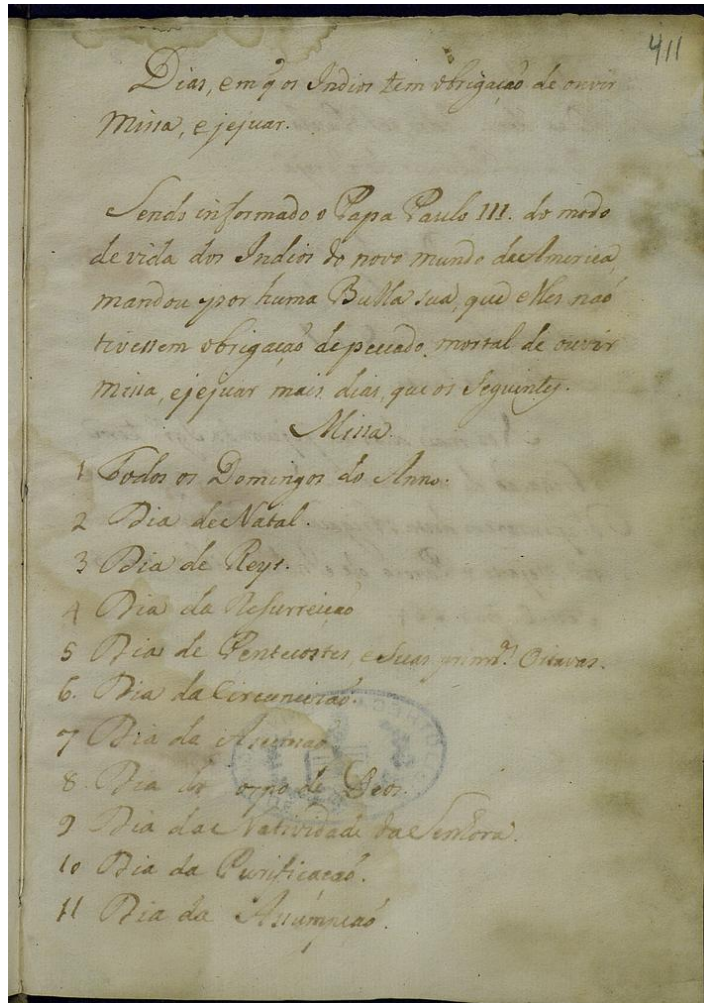 411
Dias, em q̃ os Indios tem obrigaçaõ de ouvir
Missa, e jejuar.
Sendo informado o Papa Paulo III. do modo
de vida dos Indios do novo mundo da America,
mandou por huma Bulla sua, que elles naõ
tivessem obrigaçaõ de peccado mortal de ouvir
missa, e jejuar mais dias, que os seguintes.
Missa.
1 Todos os Domingos do Anno.
2 Dia de Natal.
3 Dia de Reys.
4 Dia da Resurreiçaõ
5 Dia de Pentecostes, e suas prim.ras Oitavas.
6. Dia da Circuncisaõ.
7 Dia da Ascensaõ
8. Dia do Corpo de Deos.
9 Dia da Natividade da Senhora.
10 Dia da Purificaçaõ.
11 Dia da Assumpçaõ.